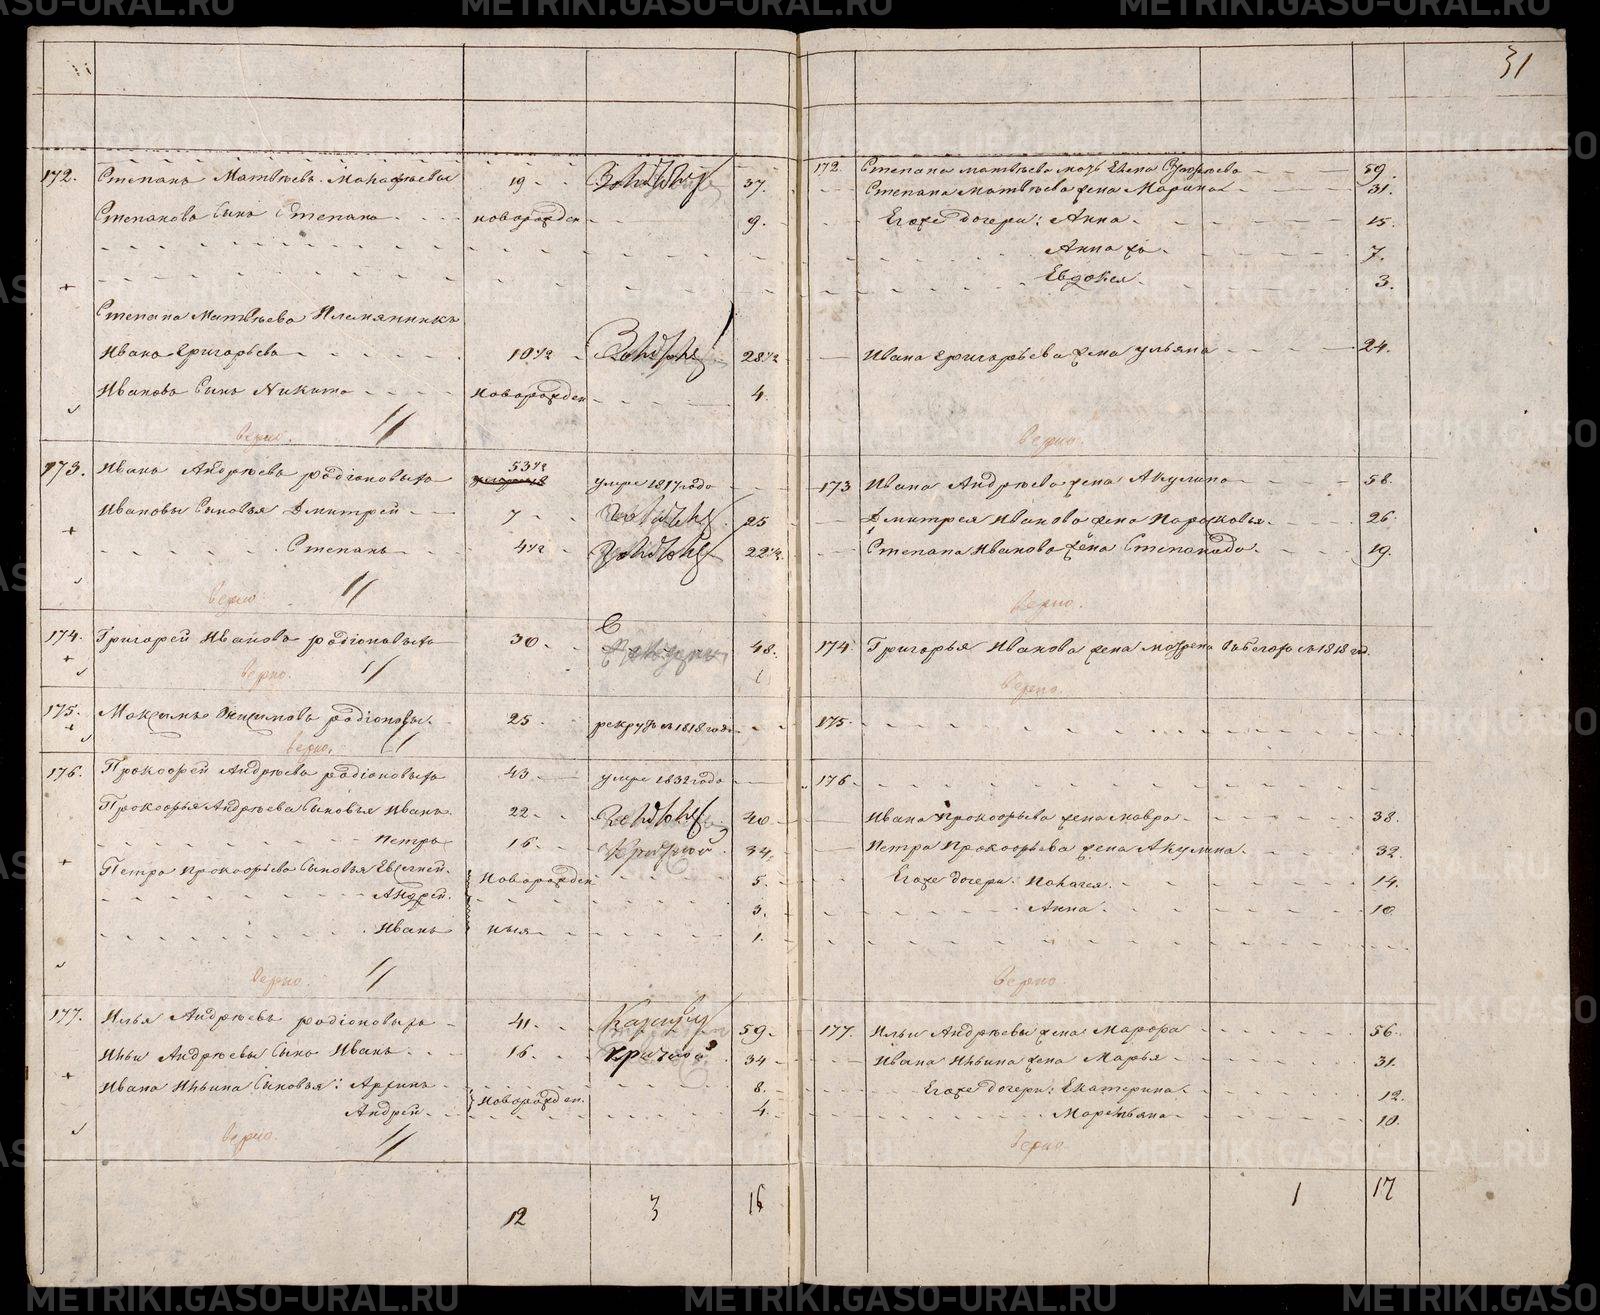 METRIKI.GASO-URAL.RU
31
172. Степанъ Матвѣевъ 19 37.
Степановъ сынъ Степанъ новорожден 9.
Степана Матвѣева племянникъ
Иванъ Григорьевъ 10½ 28½
Ивановъ сынъ Никита новорожден 4.
верно.
173. Иванъ Андрѣевъ родіоновыхъ 53½ умре 1817 года
Ивановы сыновья Дмитрей 7 25
Степанъ 4½ 22½
верно
174. Григорей Ивановъ родіоновыхъ 30 48.
верно.
175. Максимъ родіоновы. 25 рекрутъ 1818 года
верно.
176. Прокофей Андрѣевъ родіоновыхъ 43 умре 1832 года
Прокофья Андрѣева сыновья Иванъ 22 40
Петръ 16. 34.
Петра Прокофьева сыновья Евгеней. Новорожден 5.
Андрей. 3.
Иванъ ныя 1.
верно.
177. Илья Андрѣевъ родіоновыхъ 41. 59.
Ильи Андрѣевы сынъ Иванъ 16. 34
Ивана Ильина сыновья: 8.
Андрей новорожден. 4.
верно.
12 3 16
172. Степана Матвѣева мать Елена 59.
Степана Матвѣева жена Марина 31.
Егоже дочери: Анна 15.
Анна жъ 7.
Евдокея 3.
Ивана Григорьева жена Ульяна 24.
верно.
173 Ивана Андрѣева жена Акулина 58.
Дмитрея Иванова жена Парасковья. 26.
Степана Иванова жена Степанида. 19.
верно.
174 Григорья Иванова жена въ бегахъ съ 1818 год.
верно.
175.
176.
Ивана Прокофьева жена Мавра 38.
Петра Прокофьева жена Акулина. 32.
Егоже дочери: Палагея. 14.
Анна. 10
верно
177. Ильи Андрѣевы жена Марфа 56.
Ивана Ильина жена Марья 31.
Егоже дочери: Екатерина. 12.
Маремьяна 10.
верно
1 17